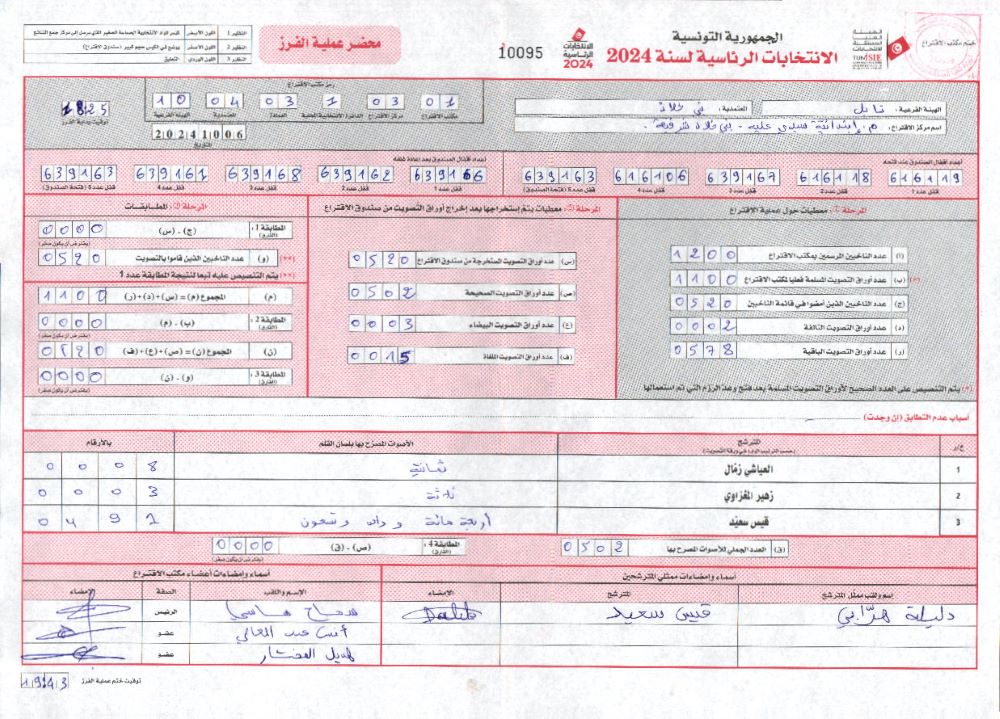 ختم مكتب الاقتراع
الهيئة
العليا
المستقلة
للانتخابات
TUNISIE
الجمهورية التونسية
الانتخابات الرئاسية لسنة 2024
الانتخابات
الرئاسية
2024
10095
محضر عملية الفرز
النظير 1 اللون الأبيض
النظير 2 اللون الأصفر
النظير 3 اللون الوردي التعليق
الهيئة الفرعية: نابل
العمادة: بني خلاد
رمز مكتب الاقتراع
01 03 1 03 04 10
مكتب الاقتراع مركز الاقتراع الدائرة الانتخابية المحلية العمادة المعتمدية الهيئة الفرعية
18 25
توقيت بداية الفرز
20241006
التاريخ
أعداد أقفال الصندوق عند فتحه
616119 616118 639167 616106 639163
قفل عدد 1 قفل عدد 2 قفل عدد 3 قفل عدد 4 قفل عدد 5 (فتحة الصندوق)
أعداد أقفال الصندوق بعد إعادة غلقه
639166 639162 639168 639161 639163
قفل عدد 1 قفل عدد 2 قفل عدد 3 قفل عدد 4 قفل عدد 5 (فتحة الصندوق)
معطيات حول عملية الاقتراع
(أ) عدد الناخبين المرسمين بمكتب الاقتراع 1200
(ب) عدد أوراق التصويت المسلمة فعليا لمكتب الاقتراع 1100
(ج) عدد الناخبين الذين أمضوا في قائمة الناخبين 0520
(د) عدد أوراق التصويت التالفة 0002
(ر) عدد أوراق التصويت الباقية 0578
(*) يتم التنصيص على العدد الصحيح لأوراق التصويت المسلمة بعد فتح وعد الرزم التي تم استعمالها
معطيات يتم إستخراجها بعد إخراج أوراق التصويت من صندوق الاقتراع
(س) عدد أوراق التصويت المستخرجة من صندوق الاقتراع 0520
(ص) عدد أوراق التصويت الصحيحة 0502
(ع) عدد أوراق التصويت البيضاء 0003
(ف) عدد أوراق التصويت الملغاة 0015
المطابقات
المطابقة 1: (ج) - (س) 0000
(الفارق) (يفترض أن يكون صفر)
(و) عدد الناخبين الذين قاموا بالتصويت 0520 (**)
(**) يتم التنصيص عليه تبعا لنتيجة المطابقة عدد 1
(م) المجموع (م) = (س)+(د)+(ر) 1100
المطابقة 2: (ب) - (م) 0000
(الفارق) (يفترض أن يكون صفر)
(ن) المجموع (ن) = (ص)+(ع)+(ف) 0520
المطابقة 3: (و) - (ن) 0000
(الفارق) (يفترض أن يكون صفر)
أسباب عدم التطابق (إن وجدت)
ع/ر المترشح الأصوات المصرح بها بلسان القلم بالأرقام
(حسب الترتيب الوارد في ورقة التصويت)
1 العياشي زمّال ثمانية 0008
2 زهير المغزاوي ثلاثة 0003
3 قيس سعيّد 0491
(ق) العدد الجملي للأصوات المصرح بها 0502
المطابقة 4: (ص) - (ق) 0000
(الفارق) (يفترض أن يكون صفر)
أسماء وإمضاءات ممثلي المترشحين
إسم ولقب ممثل المترشح المترشح الامضاء
قيس سعيد
أسماء وإمضاءات أعضاء مكتب الاقتراع
الإسم واللقب الصفة الإمضاء
الرئيس
عضو
عضو
توقيت ختم عملية الفرز 19 43